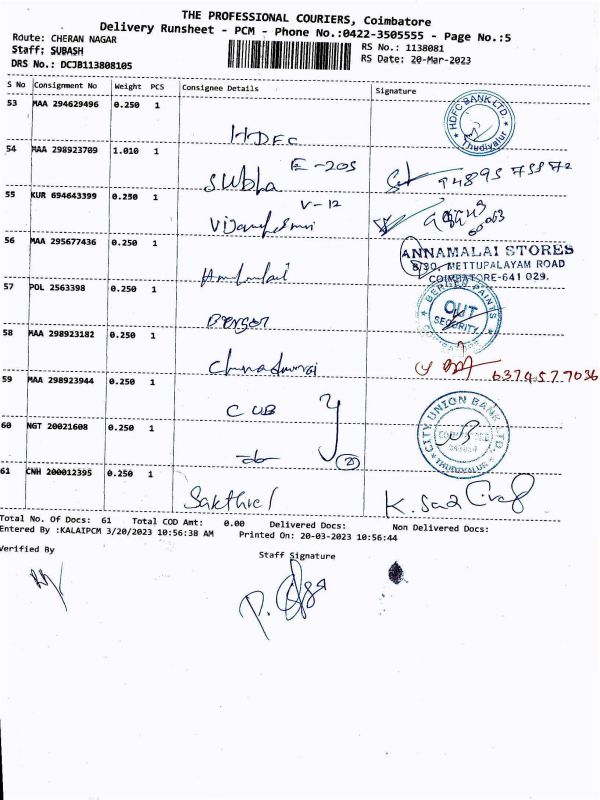 THE PROFESSIONAL COURIERS, Coimbatore
Delivery Runsheet - PCM - Phone No.:0422-3505555 - Page No.:5
Route: CHERAN NAGAR
Staff: SUBASH
DRS No.: DCJB113808105
RS No.: 1138081
RS Date: 20-Mar-2023
S No Consignment No Weight PCS Consignee Details Signature
53 MAA 294629496 0.250 1
HDFC
HDFC BANK LTD. Thudiyalur
54 MAA 298923709 1.010 1
E-205
Subha
55 KUR 694643399 0.250 1
V-12
56 MAA 295677436 0.250 1
ANNAMALAI STORES
8/30, METTUPALAYAM ROAD
COIMBATORE-641 029.
57 POL 2563398 0.250 1
Berger
BERGER PAINTS
OUT
SECURITY
58 MAA 298923182 0.250 1
Chinnadurai
6374577036
59 MAA 298923944 0.250 1
CUB
CITY UNION BANK LTD.
60 NGT 20021608 0.250 1
do
2
61 CNH 200012395 0.250 1
Sakthivel
Total No. Of Docs: 61 Total COD Amt: 0.00 Delivered Docs: Non Delivered Docs:
Entered By :KALAIPCM 3/20/2023 10:56:38 AM Printed On: 20-03-2023 10:56:44
Verified By
Staff Signature